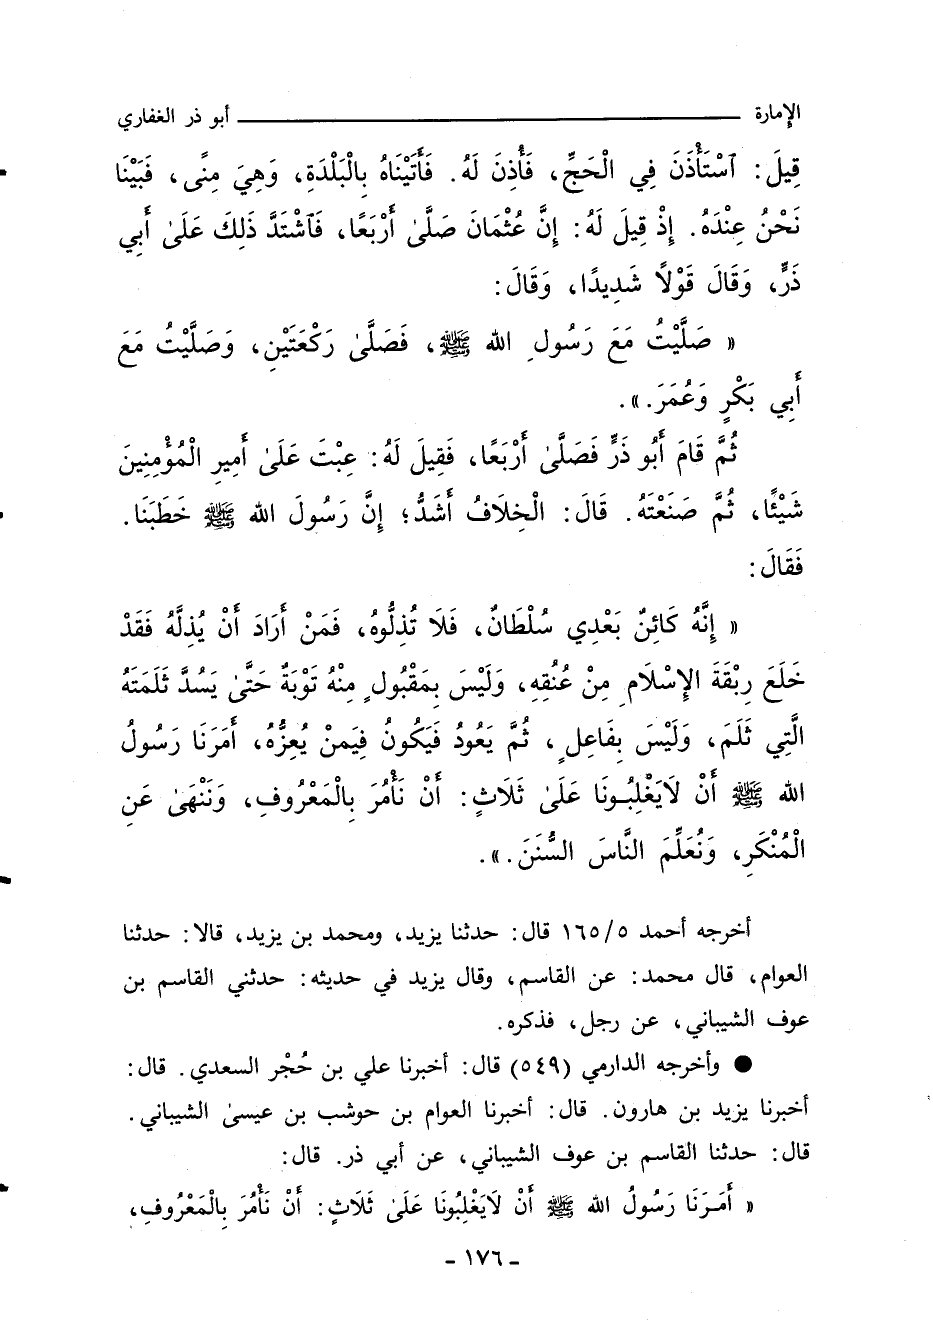 الإمارة ــــــــــــــــــــــــــــــــــــــــ أبو ذر الغفاري
قِيلَ: ٱسْتَأْذَنَ فِي الْحَجِّ، فَأُذِنَ لَهُ. فَأَتَيْنَاهُ بِالْبَلْدَةِ، وَهِيَ مِنًى، فَبَيْنَا
نَحْنُ عِنْدَهُ. إِذْ قِيلَ لَهُ: إِنَّ عُثْمَانَ صَلَّىٰ أَرْبَعًا، فَٱشْتَدَّ ذٰلِكَ عَلَىٰ أَبِي
ذَرٍّ، وَقَالَ قَوْلًا شَدِيدًا، وَقَالَ:
« صَلَّيْتُ مَعَ رَسُولِ الله ﷺ، فَصَلَّىٰ رَكْعَتَيْنِ، وَصَلَّيْتُ مَعَ
أَبِي بَكْرٍ وَعُمَرَ.».
ثُمَّ قَامَ أَبُو ذَرٍّ فَصَلَّىٰ أَرْبَعًا، فَقِيلَ لَهُ: عِبْتَ عَلَىٰ أَمِيرِ الْمُؤْمِنِينَ
شَيْئًا، ثُمَّ صَنَعْتَهُ. قَالَ: الْخِلَافُ أَشَدُّ؛ إِنَّ رَسُولَ الله ﷺ خَطَبَنَا.
فَقَالَ:
« إِنَّهُ كَائِنٌ بَعْدِي سُلْطَانٌ، فَلَا تُذِلُّوهُ، فَمَنْ أَرَادَ أَنْ يُذِلَّهُ فَقَدْ
خَلَعَ رِبْقَةَ الإِسْلَامِ مِنْ عُنُقِهِ، وَلَيْسَ بِمَقْبُولٍ مِنْهُ تَوْبَةٌ حَتَّىٰ يَسُدَّ ثَلْمَتَهُ
الَّتِي ثَلَمَ، وَلَيْسَ بِفَاعِلٍ، ثُمَّ يَعُودُ فَيَكُونُ فِيمَنْ يُعِزُّهُ، أَمَرَنَا رَسُولُ
الله ﷺ أَنْ لَايَغْلِبُونَا عَلَىٰ ثَلَاثٍ: أَنْ نَأْمُرَ بِالْمَعْرُوفِ، وَنَنْهَىٰ عَنِ
الْمُنْكَرِ، وَنُعَلِّمَ النَّاسَ السُّنَنَ.».
أخرجه أحمد ١٦٥/٥ قال: حدثنا يزيد، ومحمد بن يزيد، قالا: حدثنا
العوام، قال محمد: عن القاسم، وقال يزيد في حديثه: حدثني القاسم بن
عوف الشيباني، عن رجل، فذكره.
● وأخرجه الدارمي (٥٤٩) قال: أخبرنا علي بن حُجْر السعدي. قال:
أخبرنا يزيد بن هارون. قال: أخبرنا العوام بن حوشب بن عيسىٰ الشيباني.
قال: حدثنا القاسم بن عوف الشيباني، عن أبي ذر. قال:
« أَمَرَنَا رَسُولُ الله ﷺ أَنْ لَايَغْلِبُونَا عَلَىٰ ثَلَاثٍ: أَنْ نَأْمُرَ بِالْمَعْرُوفِ،
- ١٧٦ -